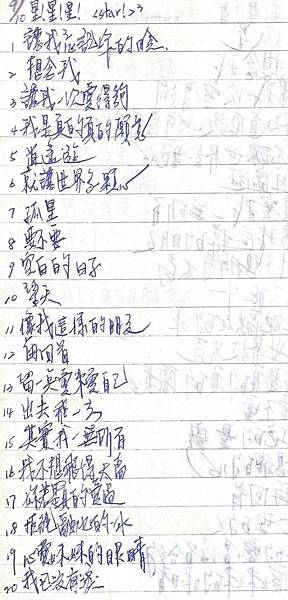 9/10 星!星!星! <star!>3
1 讓我忘記你的臉
2 想念我
3 讓我一次愛得夠
4 我是真的真的願意
5 逍遙遊
6 就讓世界多一顆心
7 孤星
8 要不要
9 空白的日子
10 望天
11 像我這樣的朋友
12 每回首
13 留一點愛來愛自己
14 出去
15 其實我一無所有
16 我不想飛得太高
17 你若真的愛過
18 拒絕融化的冰
19 心愛妹妹的眼睛
20 我已沒有